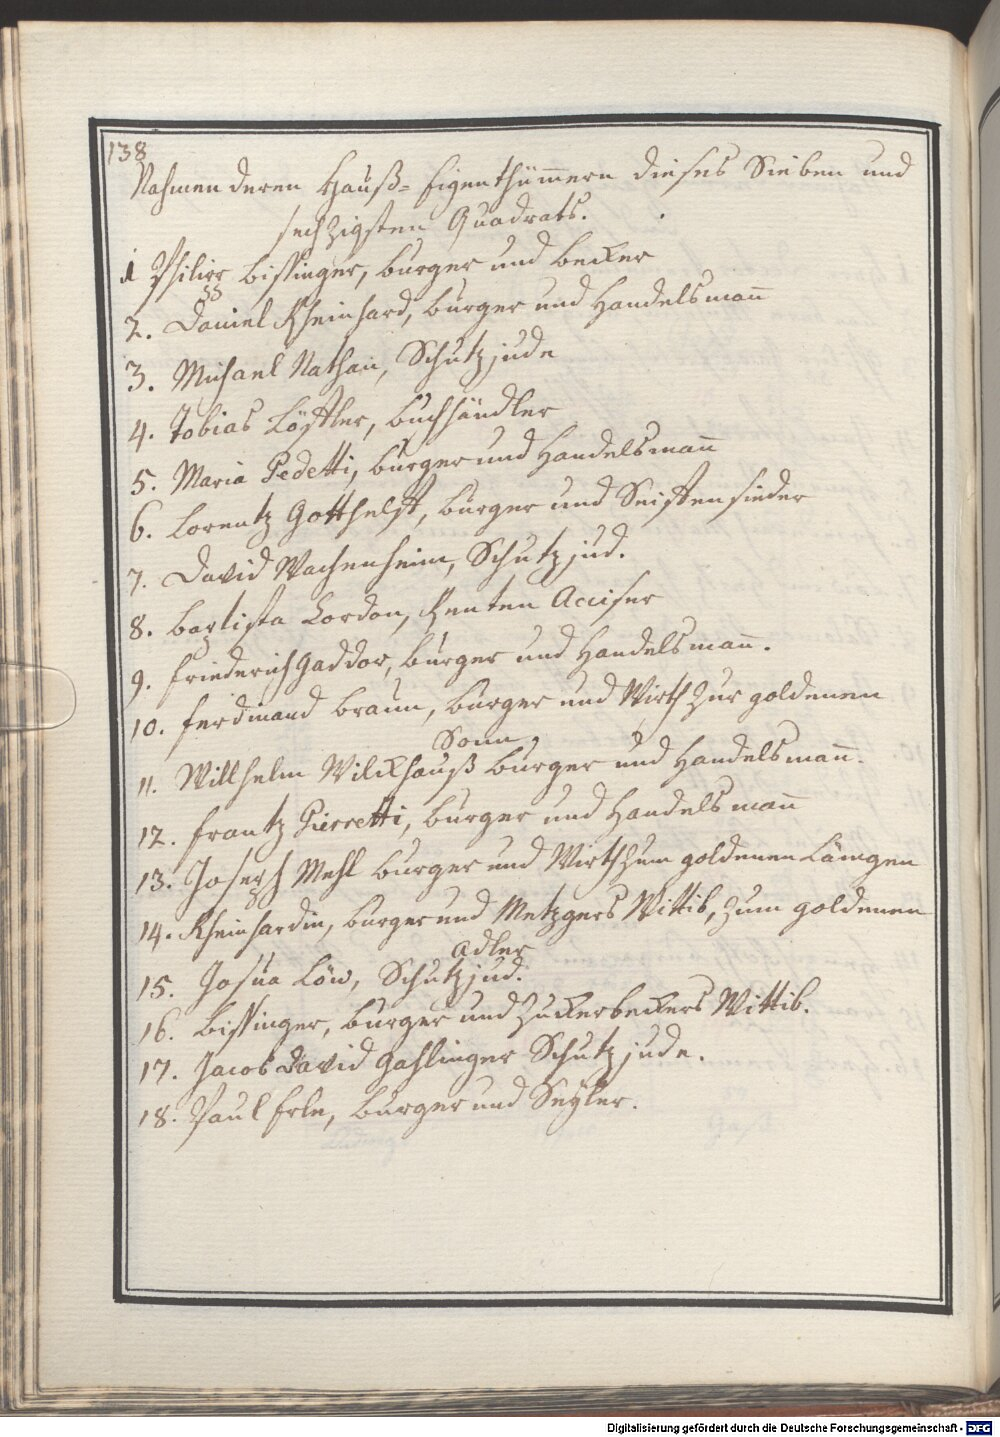 138
Nahmen deren Hauß= Eigenthümmern dieses Sieben und
sechzigsten Quadrats.
1 Philipp Bissinger, burger und becker
2. Daniel Rheinhard, burger und Handelsmañ
3. Michael Nathan, Schutzjude
4. Tobias Löffler, buchhändler
5. Maria Pedetti, burger und Handelsmañ
6. Lorentz Gotthelft, burger und Seiffensieder
7. David Wachenheim, Schutzjud.
8. baptista Lordon, Renten Acciser
9. Friederich Gaddor, burger und Handelsmañ.
10. Ferdinand braun, burger und Wirth zur goldenen
Sonn,
11. Willhelm Wilckhauß burger und Handelsmañ.
12. Frantz Pierretti, burger und Handelsmañ
13. Joseph Mehl burger und Wirth zum goldenen Lämgen
14. Rheinhardin, burger und Metzgers Wittib, zum goldenen
Adler
15. Josua Löw, Schutzjud.
16. bissinger, burger und Zuckerbeckers Wittib.
17. Jacob David Gahlinger Schutzjude.
18. Paul Erle, burger und Seyler.
Digitalisierung gefördert durch die Deutsche Forschungsgemeinschaft - DFG